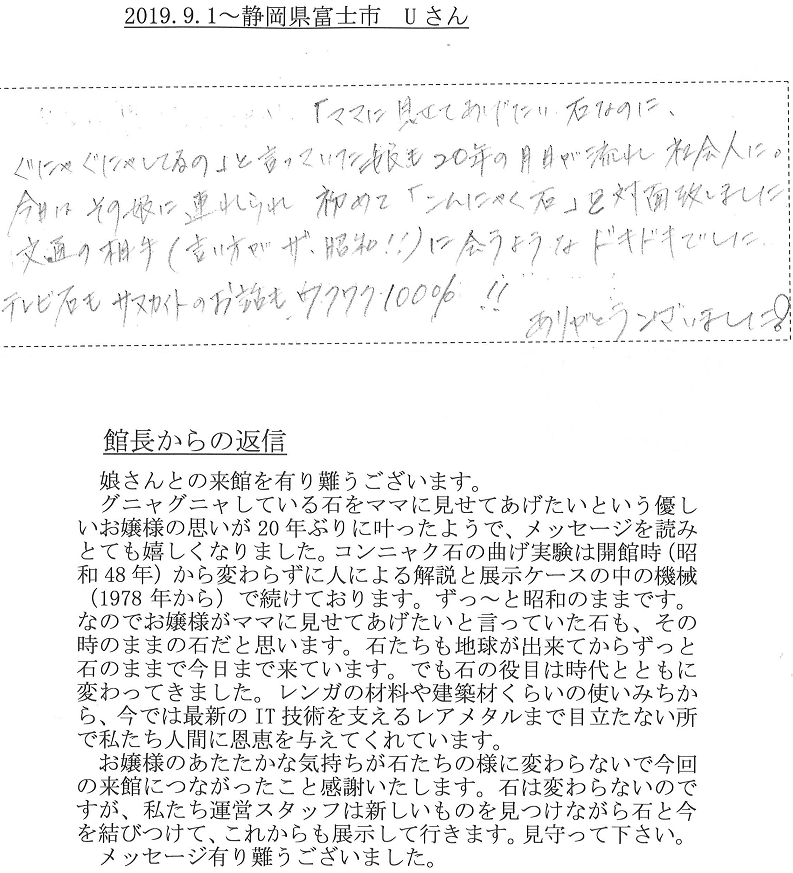 2019.9.1～静岡県富士市　Uさん
「ママに見せてあげたい石なのに、
ぐにゃぐにゃしてるの」と言っていた娘も20年の月日が流れ社会人に。
今日はその娘に連れられ　初めて「こんにゃく石」と対面致しました
文通の相手(言い方がザ・昭和!!)に会うようなドキドキでした。
テレビ石もサヌカイトのお話も　ワクワク100% !!
ありがとうございました!
館長からの返信
娘さんとの来館を有り難うございます。
グニャグニャしている石をママに見せてあげたいという優し
いお嬢様の思いが20年ぶりに叶ったようで、メッセージを読み
とても嬉しくなりました。コンニャク石の曲げ実験は開館時（昭
和48年）から変わらずに人による解説と展示ケースの中の機械
（1978年から）で続けております。ずっ～と昭和のままです。
なのでお嬢様がママに見せてあげたいと言っていた石も、その
時のままの石だと思います。石たちも地球が出来てからずっと
石のままで今日まで来ています。でも石の役目は時代とともに
変わってきました。レンガの材料や建築材くらいの使いみちか
ら、今では最新のIT技術を支えるレアメタルまで目立たない所
で私たち人間に恩恵を与えてくれています。
お嬢様のあたたかな気持ちが石たちの様に変わらないで今回
の来館につながったこと感謝いたします。石は変わらないので
すが、私たち運営スタッフは新しいものを見つけながら石と今
を結びつけて、これからも展示して行きます。見守って下さい。
メッセージ有り難うございました。